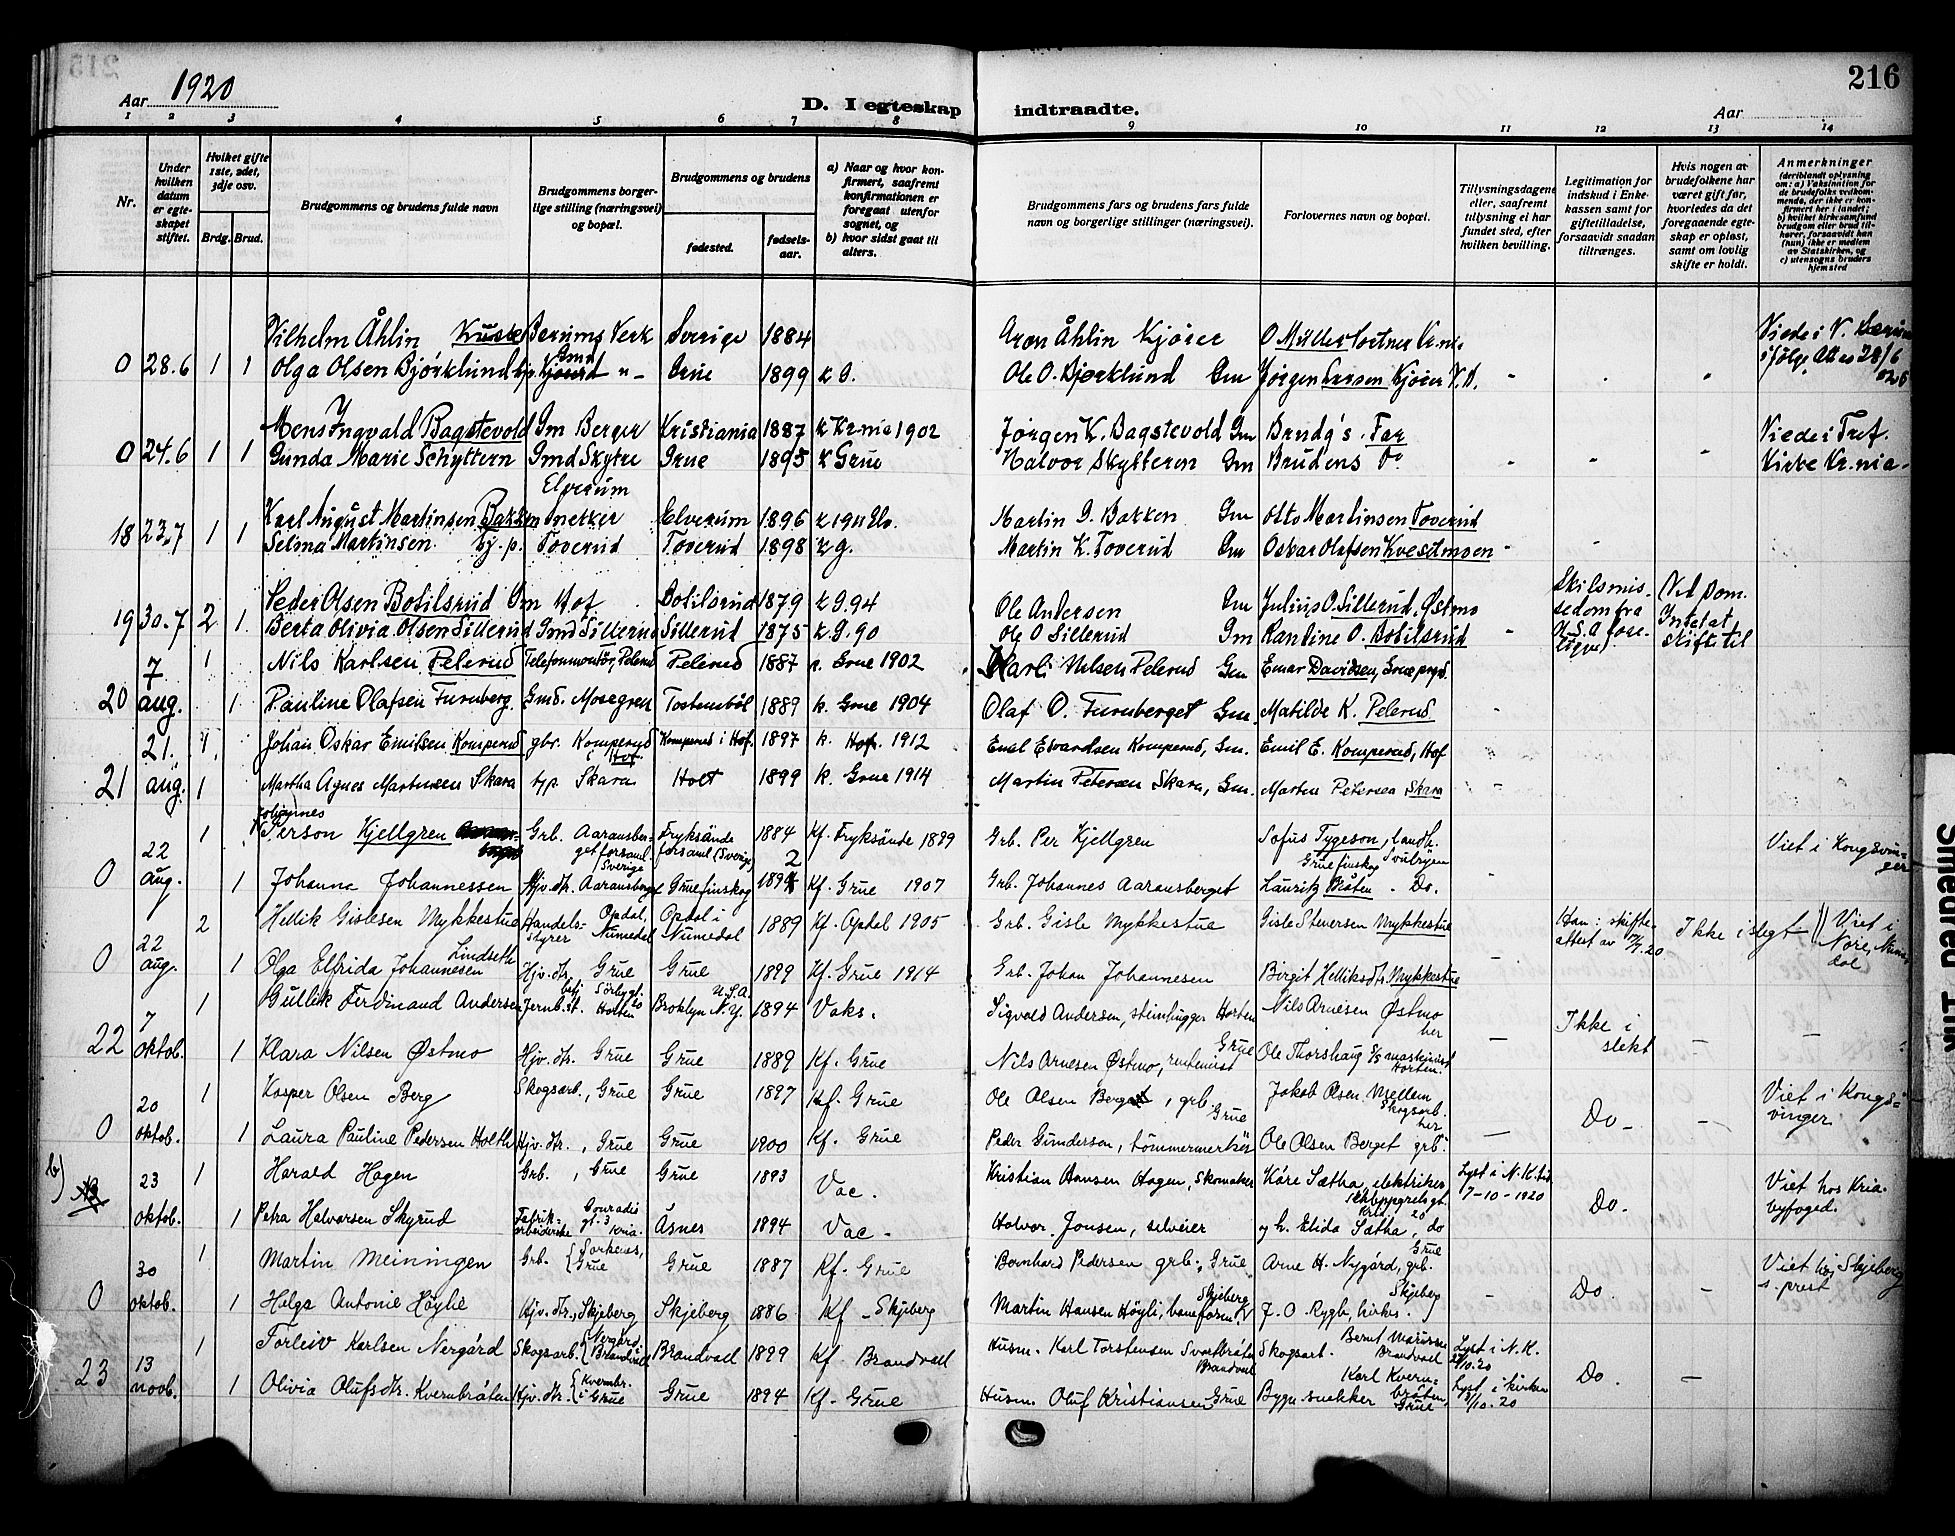 216
Aar 1920
D. I egteskap indtraadte.
Aar
1 2 3 4 5 6 7 8 9 10 11 12 13 14
Nr.
Under hvilken datum er egteskapet stiftet.
Hvilket gifte 1ste, 2det, 3dje osv.
Brdg. Brud.
Brudgommens og brudens fulde navn
Brudgommens borgerlige stilling (næringsvei) og bopæl.
Brudgommens og brudens
fødested.
fødselsaar.
a) Naar og hvor konfirmert, saafremt konfirmationen er foregaat utenfor sognet, og
b) hvor sidst gaat til alters.
Brudgommens fars og brudens fars fulde navn og borgerlige stillinger (næringsvei).
Forlovernes navn og bopæl.
Tillysningsdagene eller, saafremt tillysning ei har fundet sted, efter hvilken bevilling.
Legitimation for indskud i Enkekassen samt for giftetilladelse, forsaavidt saadan tiltrænges.
Hvis nogen av brudefolkene har været gift før, hvorledes da det foregaaende egteskap er opløst, samt om lovlig skifte er holdt.
Anmerkninger
(deriblandt oplysning om: a) Vaksination for de brudefolks vedkommende, der ikke er konfirmert her i landet; b) hvilket kirkesamfund brudgom eller brud tilhører, forsaavidt han (hun) ikke er medlem av Statskirken, og c) utensogns bruders hjemsted
Vilhelm Åhlin Bærums Verk Sverige 1884 Aron Åhlin Kjører O Müller Viede i V. Bærum
0 28.6 1 1 Olga Olsen Bjørklund Grue 1899 k G. Ole O. Bjørklund Gm Jørgen Larsen Kjører V. B. 28/6
Mens Ingvald Bagstevold Gm Berger Kristiania 1887 k Kr.nia 1902 Jørgen K. Bagstevold Gm Brudg's Far Viede i Tref.
0 24.6 1 1 Gunda Marie Schyttern Gmd Skytre Grue 1895 k Grue Halvor Skytteren Gm Brudens Do Kirke Kr.nia
Elverum
Karl August Martinsen Bakken Elverum 1896 k 1911 Elv. Martin G. Bakken Gm Otto Martinsen Toverud
18 23.7 1 1 Selma Martinsen tj. p. Toverud Toverud 1898 k g. Martin K. Toverud Gm Oskar Olafsen Kvesetmoen
Peder Olsen Botilsrud Gm Hof Botilsrud 1879 k G. 94 Ole Andersen Gm Julius O. Sillerud, Østmo Skilsmissedom fra U.S.A.
19 30.7 2 1 Berta Olivia Olsen Sillerud Gmd Sillerud Sillerud 1875 k. G. 90 Ole O Sillerud Gm Kantine O. Botilsrud Ved dom. Intet at skifte til
7 1 Nils Karlsen Pelerud Telefonmontør, Pelerud Pelerud 1887 k. Grue 1902 Karl Nilsen Pelerud Gm Einar Davidsen, Grue prgd.
20 aug. 1 Pauline Olafsen Furuberg. Gmd. Mosegren Tostensbøl 1889 k. Grue 1904 Olaf O. Furuberget Gm. Matilde K. Pelerud
21. 1. Johan Oskar Emilsen Komperud gbr. Komperud Hof Komperud i Hof. 1897 k. Hof. 1912 Emil Edvardsen Komperud, Gm. Emil E. Komperud, Hof
21 aug. 1 Martha Agnes Martinsen Skara t/p. Skara Holt 1899 k. Grue 1914 Martin Petersen Skara, Gm. Martin Petersen Skara
Johannes
Person Kjellgren Grb. Aaransberget forsaml. Sverige Fryksände forsaml (Sverige) 1884 Kf. Fryksände 1899 Grb. Per Kjellgren Sofus Tygeson, landh. Gruefinskog Svulryen Viet i Kongsvinger
0 22 aug. 1 Johanna Johannessen Hjv. dtr. Aaransberget Gruefinskog 1892 Kf. Grue 1907 Grb. Johannes Aaransberget Lauritz Bråten - Do.
2 Hellik Gislesen Mykkestue Handelsstyrer Opdal, Numedal Opdal i Numedal 1889 Kf. Opdal 1905 Grb. Gisle Mykkestue Gisle Stenersen Mykkestue Han: skifteattest av 7/7.20 Ikke i slegt Viet i Nore, Numedal
0 22 aug. 1 Olga Elfrida Johannesen Lindseth Hjv. dtr, Grue Grue 1899 Kf. Grue 1914 Grb. Johan Johannesen Birgit Helliksdtr. Mykkestue
7 1 Gullik Ferdinand Andersen Jernb.bet. Horten Broklyn N.Y. U.S.A. 1894 Vaks. Sigvald Andersen, stenhugger Horten Nils Arnesen Østmo her Ikke i slekt
22 oktob. 1 Klara Nilsen Østmo Hjv. dtr. Grue Grue 1889 Kf. Grue Nils Arnesen Østmo, rentenist Grue Ole Thorshaug maskinist Horten.
20 1 Kasper Olsen Berg Skogsarb., Grue Grue 1897 Kf. Grue Ole Olsen Berget, grb. Grue Jakob Olsen Mellem Skogsarb. her Do Viet i Kongsvinger
0 oktob. 1 Laura Pauline Pedersen Holth Hjv. dtr., Grue Grue 1900 Kf. Grue Peder Gunderson, tømmermerker Ole Olsen Berget grb.
b) 23 1 Harald Hagen Grb., Grue Grue 1893 Vac. Kristian Hansen Hagen, Skomaker Kåre Sætha, elektriker Lyst i N.K. 7-10-1920 Do. Viet hos Kria. byfoged.
oktob. 1 Petra Halvorsen Skyrud Fabrikarbeiderske Conradis gt. 3 Kria. Åsnes 1894 Vac. Halvor Jonsen, selveier og h. Elida Sætha, do
30 1 Martin Meiningen Grb. Grue Grue 1887 Kf. Grue Bernhard Pedersen grb., Grue Arne H. Nygård, grb. Grue Do. Viet hos Skjeberg s. prest
0 oktob. 1 Helga Antonie Høylie Hjv. dtr., Skjeberg Skjeberg 1886 Kf - Skjeberg Martin Hansen Høyli, baneform. Skjeberg J. O. Rygh, kirkes. Skjeberg
1 Torleiv Karlsen Nergård Skogsarb. Nergård i Brandvall Brandvall 1899 Kf. Brandvall Husm. Karl Torstensen Svartbråten Brandval Skogsarb. Bernt Marinse Brandvall Lyst i N.K. 24/10.20 Do.
23 13 novb. 1 Olivia Olufsdtr. Kvernbråten Hjv. dtr. Kvernbr. i Grue Grue 1894 Kf. Grue Husm. Oluf Kristiansen Grue Bygn. snekker Karl Kvernbråten, Grue Lyst i kirken /10.20